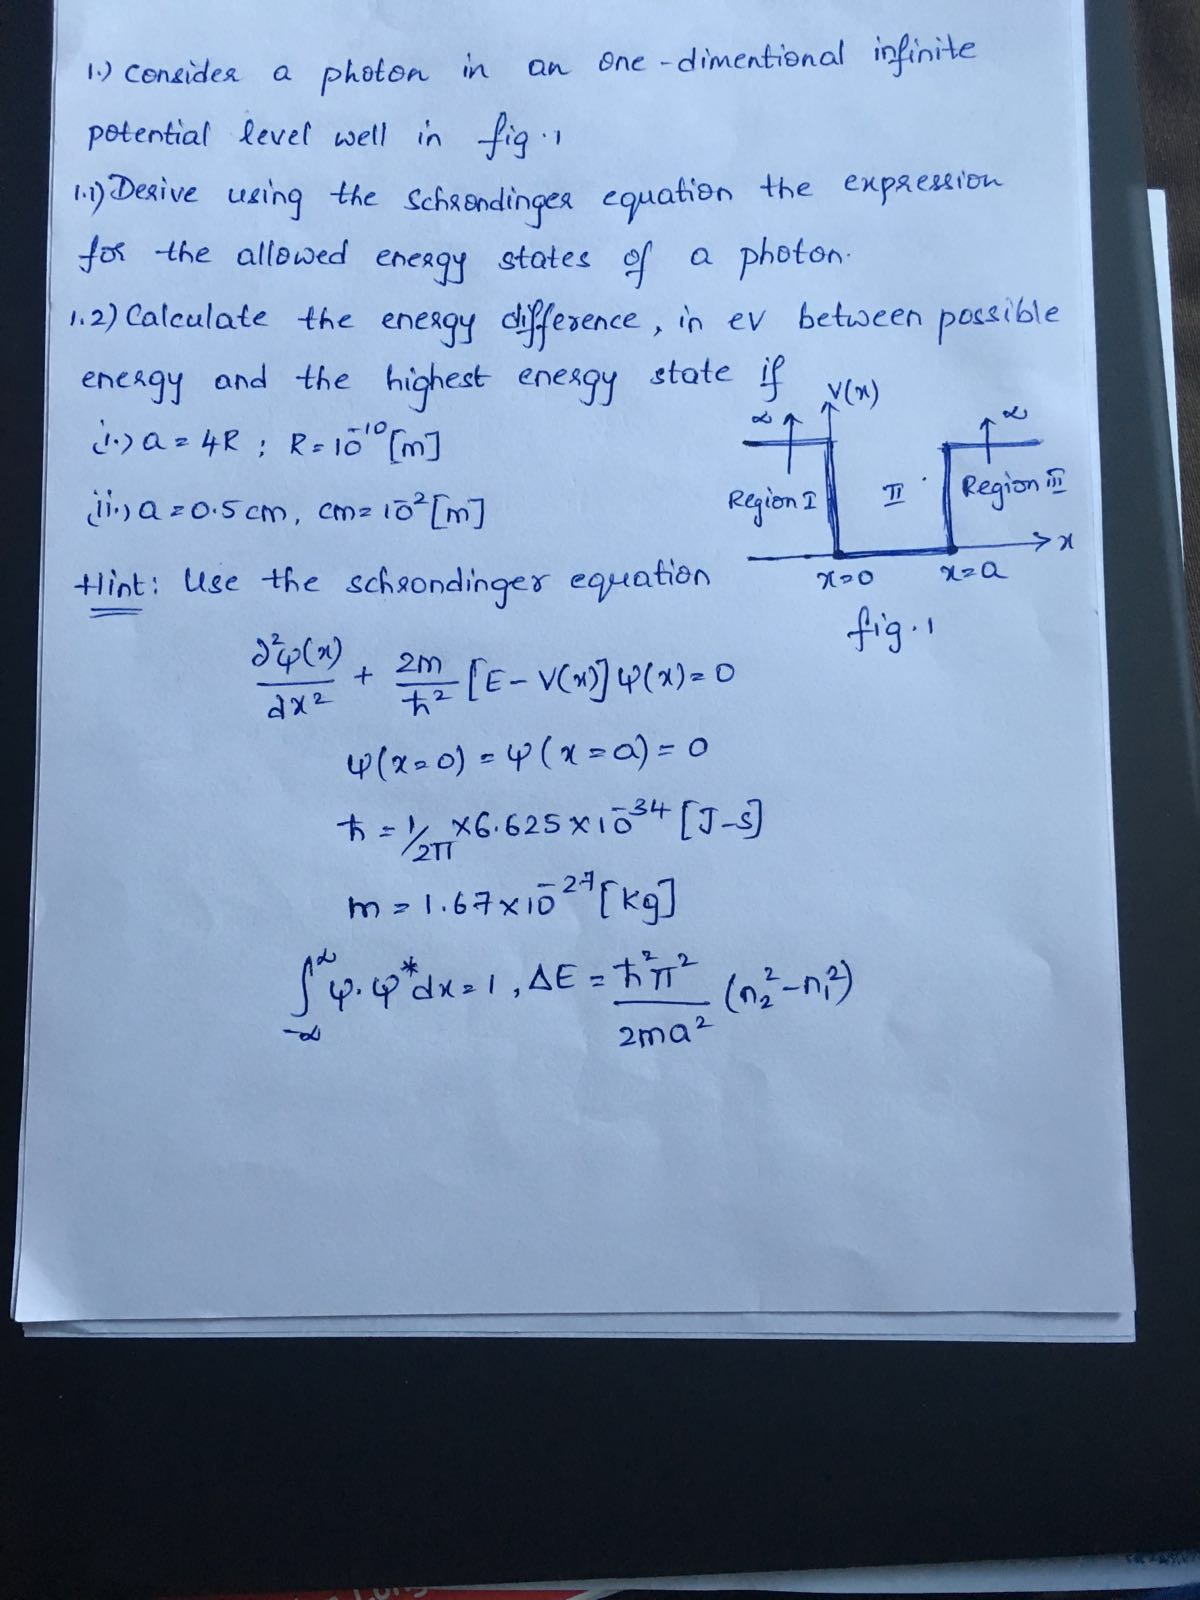 1.) Consider a photon in an one-dimentional infinite
potential level well in fig.1
1.1) Derive using the Schrondinger equation the expression
for the allowed energy states of a photon.
1.2) Calculate the energy difference, in ev between possible
energy and the highest energy state if
i.) a = 4R ; R = 10⁻¹⁰ [m]
ii.) a = 0.5 cm, cm = 10⁻² [m]
V(x)
∞ ∞
Region I II Region III
x
x=0 x=a
fig.1
Hint: Use the schrondinger equation
∂²ψ(x)/∂x² + 2m/ħ² [E - V(x)] ψ(x) = 0
ψ(x=0) = ψ(x=a) = 0
ħ = 1/2π × 6.625 × 10⁻³⁴ [J-s]
m = 1.67 × 10⁻²⁷ [kg]
∫₋∞^∞ ψ·ψ* dx = 1, ΔE = ħ²π²/2ma² (n₂² - n₁²)